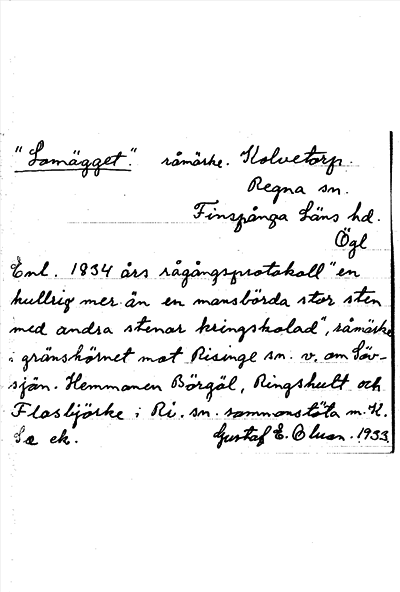 "Lomägget". råmärke. Kolvetorp.
Regna sn.
Finspånga Läns hd.
Ögl
Enl. 1834 års rågångsprotokoll "en
kullrig mer än en mansbörda stor sten
med andra stenar kringskolad", råmärke
i gränshörnet mot Risinge sn. v. om Löv-
sjön. Hemmanen Börgöl, Ringshult och
Flasbjörke i Ri. sn. sammanstöta m. K.
Se ek. Gustaf E. Olsson. 1933.